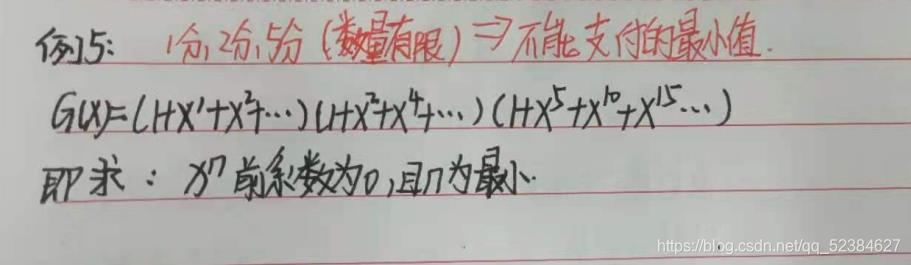 例5: 1分,2分,5分(数量有限)⇒不能支付的最小值.
G(x)=(1+x¹+x²+…)(1+x²+x⁴+…)(1+x⁵+x¹⁰+x¹⁵…)
即求: xⁿ前系数为0,且n为最小.
https://blog.csdn.net/qq_52384627